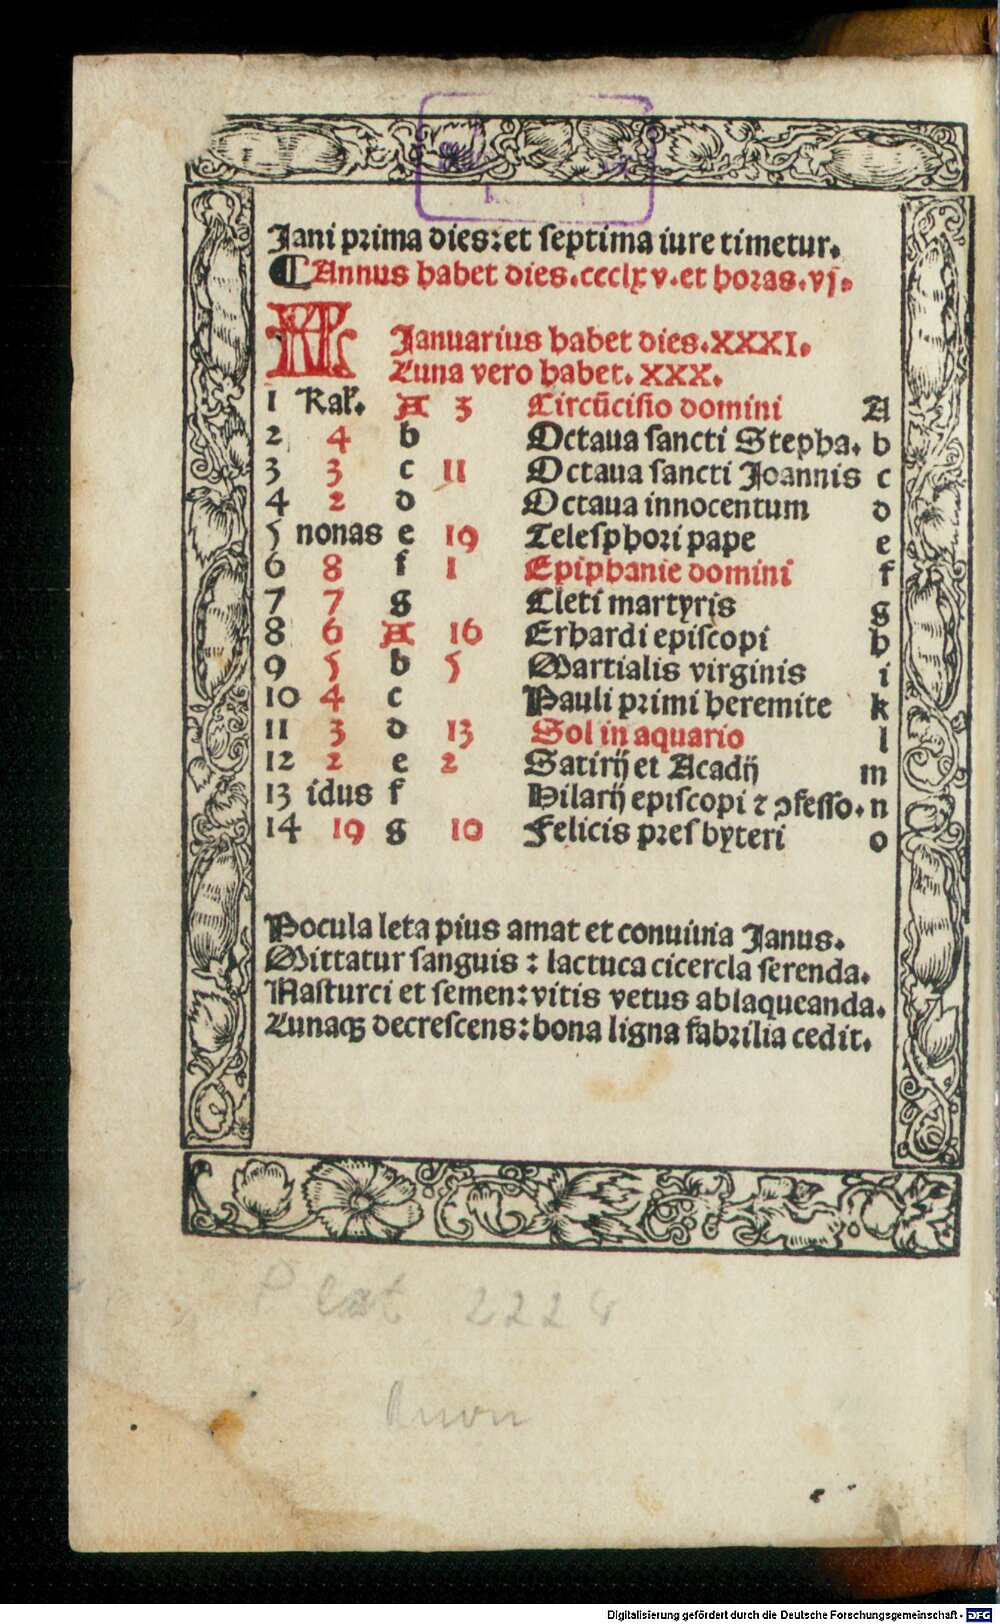 Jani prima dies: et septima iure timetur.
¶ Annus habet dies. ccclxv. et horas. vj.
KL Januarius habet dies. XXXI.
Luna vero habet. XXX.
1 Kal. A 3 Circũcisio domini A
2 4 b Octaua sancti Stepha. b
3 3 c 11 Octaua sancti Joannis c
4 2 d Octaua innocentum d
5 nonas e 19 Telesphori pape e
6 8 f 1 Epiphanie domini f
7 7 g Cleti martyris g
8 6 A 16 Erhardi episcopi h
9 5 b 5 Martialis virginis i
10 4 c Pauli primi heremite k
11 3 d 13 Sol in aquario l
12 2 e 2 Satirij et Acadij m
13 idus f Hilarij episcopi ⁊ ꝯfesso. n
14 19 g 10 Felicis presbyteri o
Pocula leta pius amat et conuiuia Janus.
Mittatur sanguis: lactuca cicercla serenda.
Nasturci et semen: vitis vetus ablaqueanda.
Lunaqꝫ decrescens: bona ligna fabrilia cedit.
P lat 2224
Digitalisierung gefördert durch die Deutsche Forschungsgemeinschaft - DFG